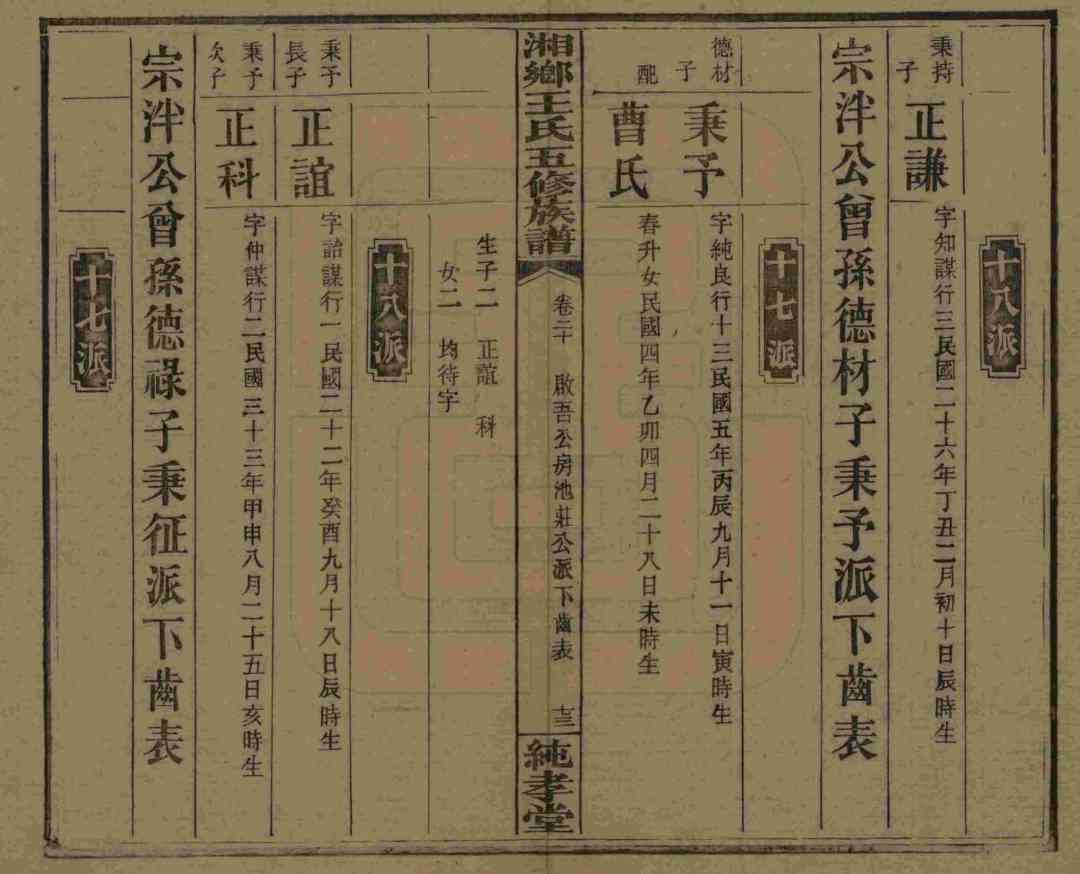 十八派
秉持子
正謙
字知謀行三民國二十六年丁丑二月初十日辰時生
宗泮公曾孫德材子秉予派下齒表
十七派
德材子
秉予
字純良行十三民國五年丙辰九月十一日寅時生
配
曹氏
春升女民國四年乙卯四月二十八日未時生
湘鄉王氏五修族譜
卷二十
啟吾公房池莊公派下齒表
純孝堂
生子二 正誼 科
女二 均待字
十八派
秉予長子
正誼
字詒謀行一民國二十二年癸酉九月十八日辰時生
秉予次子
正科
字仲謀行二民國三十三年甲申八月二十五日亥時生
宗泮公曾孫德祿子秉征派下齒表
十七派